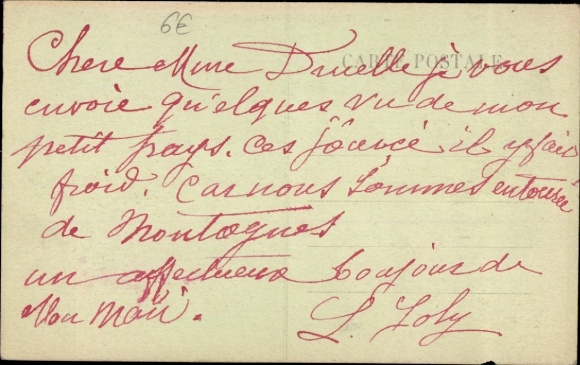 6€
CARTE POSTALE
Chere Mme Druelle je vous
envoie qu'elques vu de mon
petit pays. Ces il y fait
froid. Car nous sommes entourée
de Montagnes
un affectueux boujour de
Mon Mari.
L. Joly